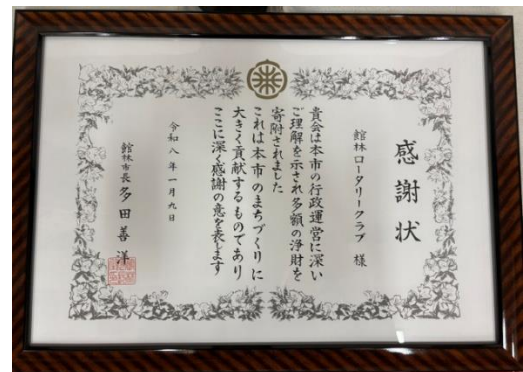 感謝状
館林ロータリークラブ 様
貴会は本市の行政運営に深い
ご理解を示され多額の浄財を
寄附されました
これは本市のまちづくりに
大きく貢献するものであり
ここに深く感謝の意を表します
令和八年一月九日
館林市長 多田善洋